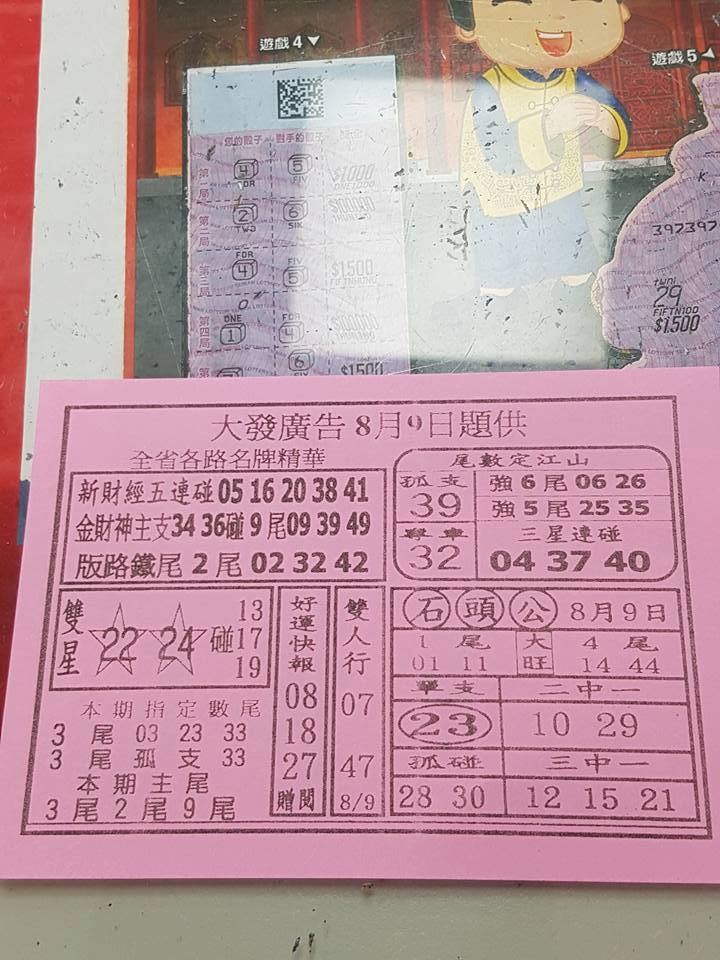 遊戲4▼
遊戲5◀
您的骰子 對手的骰子
第一局 4 FOR 5 FIV $1000
第二局 2 TWO 6 SIX
第三局 FOR 4 FIV 5 $1500
第四局 ONE 1 FOR 4
6 $1500
K
29
FIFTN100
$1,500
大發廣告8月9日題供
全省各路名牌精華
新財經五連碰 05 16 20 38 41
金財神主支34 36碰9尾09 39 49
版路鐵尾2尾02 32 42
尾數定江山
孤支 39
強6尾06 26
強5尾25 35
單車 32
三星連碰
04 37 40
雙星 22 24 碰 13 17 19
本期指定數尾
3尾 03 23 33
3尾 孤支 33
本期主尾
3尾2尾9尾
好運快報
08
18
27
贈閱
雙人行
07
47
8/9
石頭公 8月9日
1尾 大旺 4尾
01 11 14 44
單支 二中一
23 10 29
孤碰 三中一
28 30 12 15 21